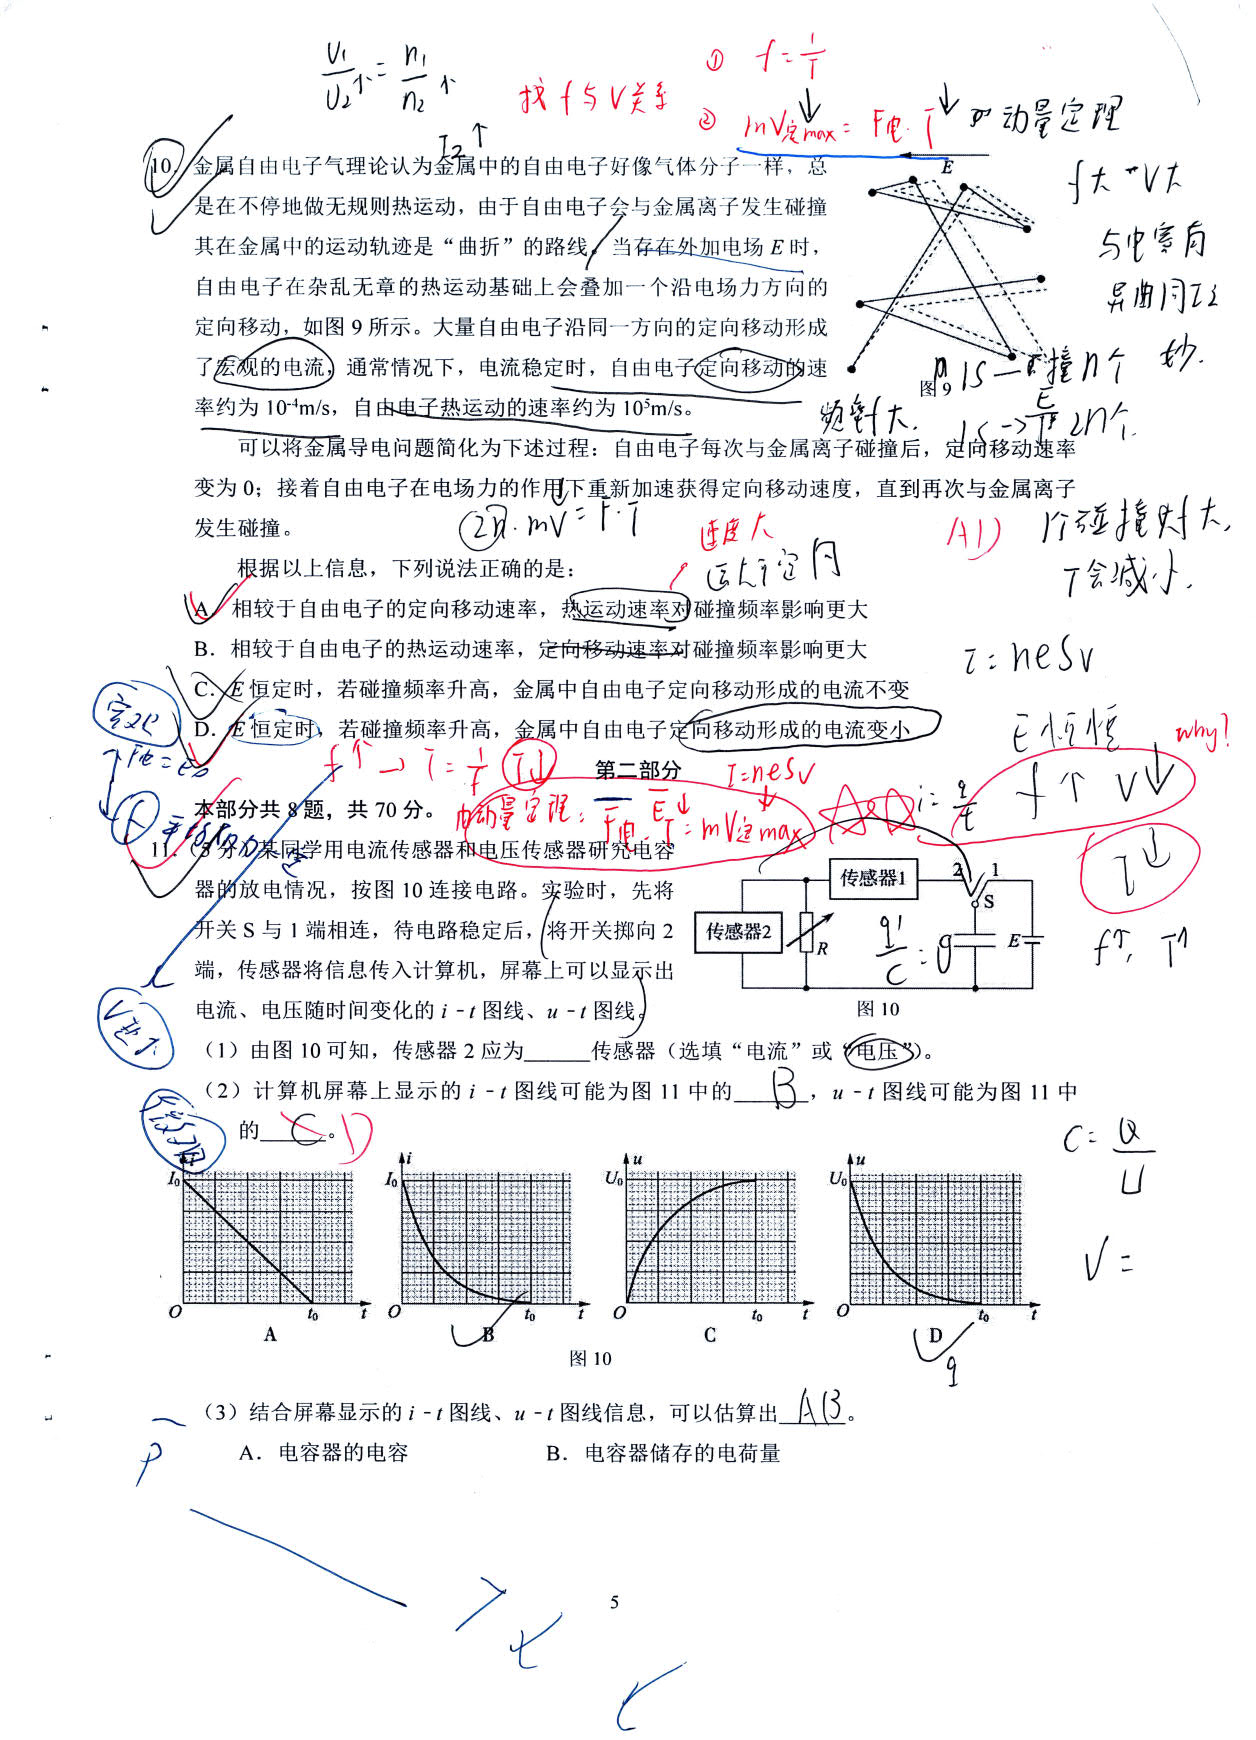 U₁/U₂↑ = n₁/n₂↑
I₂↑
找 f 与 V 关系
① f = 1/T
② mV定max↓ = F电·T↓ 动量定理
10. 金属自由电子气理论认为金属中的自由电子好像气体分子一样，总
是在不停地做无规则热运动，由于自由电子会与金属离子发生碰撞
其在金属中的运动轨迹是“曲折”的路线。当存在外加电场 E 时，
自由电子在杂乱无章的热运动基础上会叠加一个沿电场力方向的
定向移动，如图 9 所示。大量自由电子沿同一方向的定向移动形成
了宏观的电流，通常情况下，电流稳定时，自由电子定向移动的速
率约为 10⁻⁴m/s，自由电子热运动的速率约为 10⁵m/s。
E
图 9
f大 V大
与电容有
异曲同工之
妙.
1S 撞n个
频率f大.
1S → 2n个.
可以将金属导电问题简化为下述过程：自由电子每次与金属离子碰撞后，定向移动速率
变为 0；接着自由电子在电场力的作用下重新加速获得定向移动速度，直到再次与金属离子
发生碰撞。
2n·mV = F·T
速度大
A1)
T会减小.
根据以上信息，下列说法正确的是：
A．相较于自由电子的定向移动速率，热运动速率对碰撞频率影响更大
B．相较于自由电子的热运动速率，定向移动速率对碰撞频率影响更大
C．E 恒定时，若碰撞频率升高，金属中自由电子定向移动形成的电流不变
D．E 恒定时，若碰撞频率升高，金属中自由电子定向移动形成的电流变小
I = neSv
E 恒
f↑ V↓
why?
I↓
f↑, T↑
f↑ → T = 1/f T↓
I = neSv
动量定理: F电·T↓ = mV定max↓
i = q/t
第二部分
本部分共 8 题，共 70 分。
11.（8 分）某同学用电流传感器和电压传感器研究电容
器的放电情况，按图 10 连接电路。实验时，先将
开关 S 与 1 端相连，待电路稳定后，将开关掷向 2
端，传感器将信息传入计算机，屏幕上可以显示出
电流、电压随时间变化的 i - t 图线、u - t 图线。
传感器1
传感器2
R
2
1
S
E
图 10
（1）由图 10 可知，传感器 2 应为______传感器（选填“电流”或“电压”）。
（2）计算机屏幕上显示的 i - t 图线可能为图 11 中的 B ，u - t 图线可能为图 11 中
的 C 。 D
C = Q/U
V =
I₀ O t₀ t A
i I₀ O t₀ t B
u U₀ O t₀ t C
u U₀ O t₀ t D
q
图 10
（3）结合屏幕显示的 i - t 图线、u - t 图线信息，可以估算出 AB 。
A．电容器的电容
B．电容器储存的电荷量
P
5